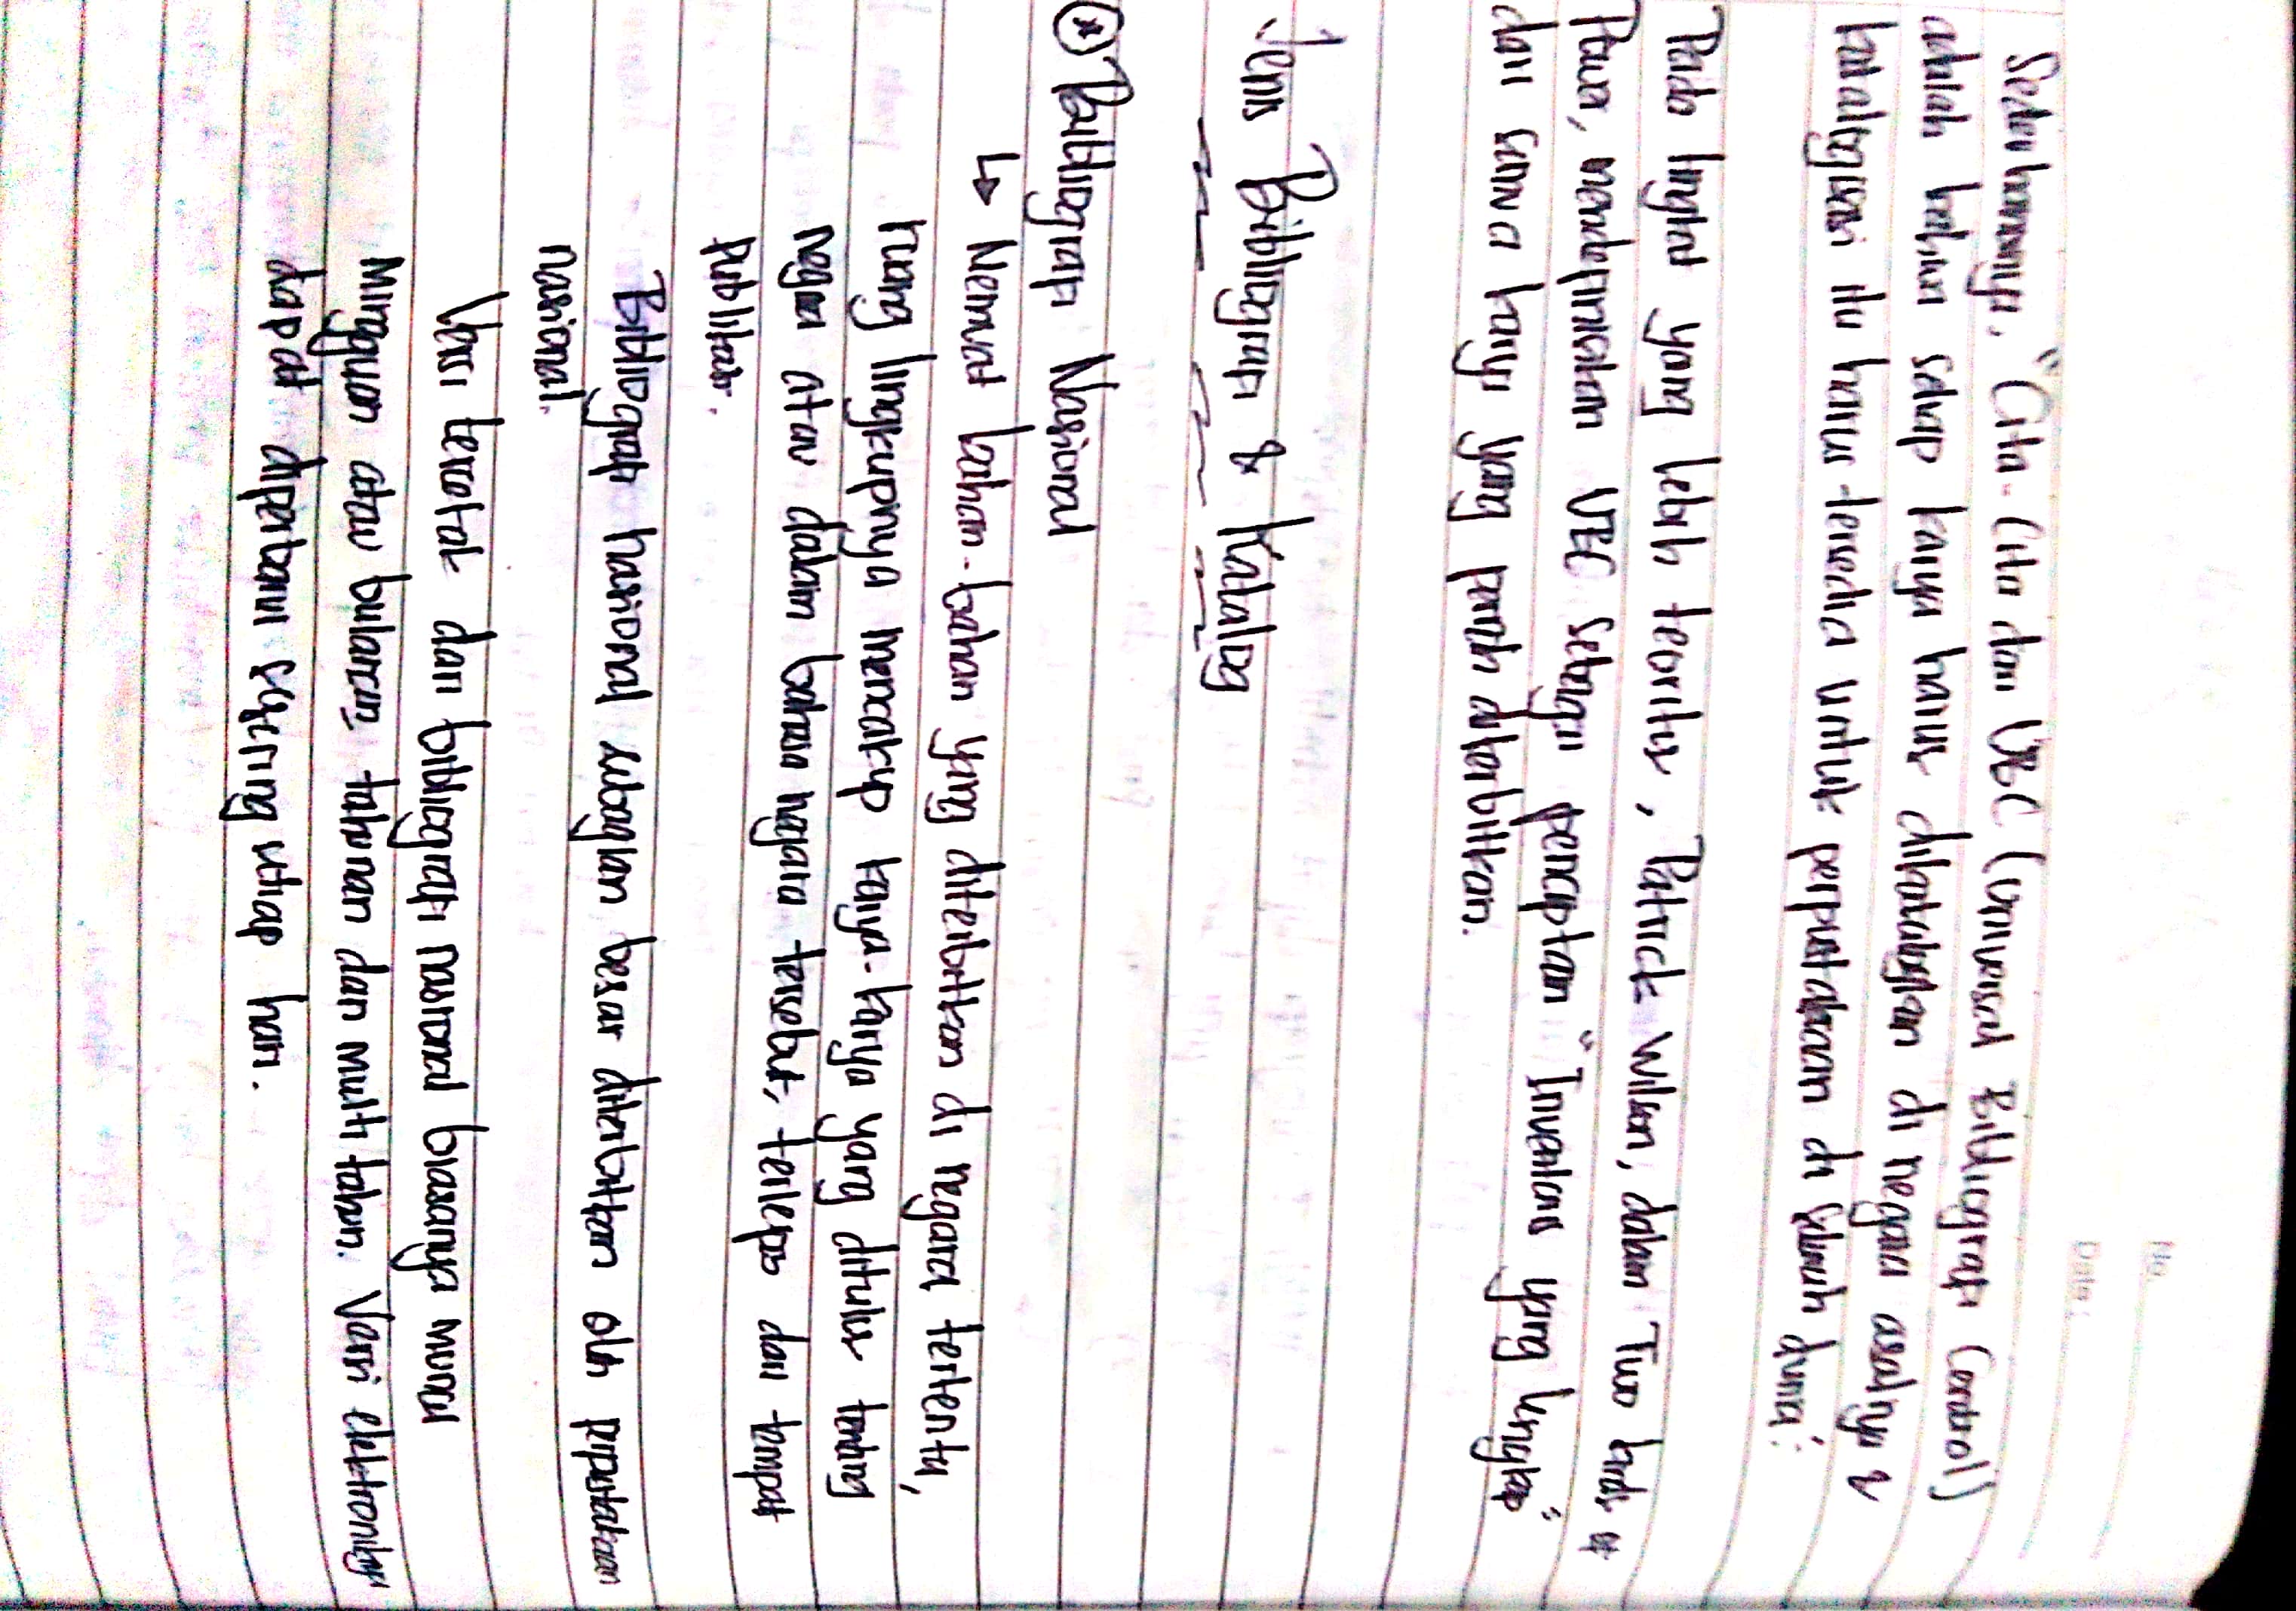 No.
Date:
Sederhananya, "Cita-Cita dari UBC (Universal Bibliografi Control)
adalah bahwa setiap karya harus dikatalogkan di negara asalnya &
katalogisasi itu harus tersedia untuk perpustakaan di seluruh dunia".
Pada tingkat yang lebih teoritis, Patrick Wilson, dalam Two kinds of
Power, mendefinisikan UBC sebagai penciptaan "Inventaris yang lengkap"
dari semua karya yang pernah diterbitkan.
Jenis Bibliografi & Katalog
* Bibliografi Nasional
↳ Memuat bahan-bahan yang diterbitkan di negara tertentu,
ruang lingkupnya mencakup karya-karya yang ditulis tentang
negara atau dalam bahasa negara tersebut, terlepas dari tempat
publikasi.
Bibliografi nasional sebagian besar diterbitkan oleh perpustakaan
nasional.
Versi tercetak dari bibliografi nasional biasanya muncul
Mingguan atau bulanan, tahunan dan multi tahun. Versi elektroniknya
dapat diperbarui sesering setiap hari.